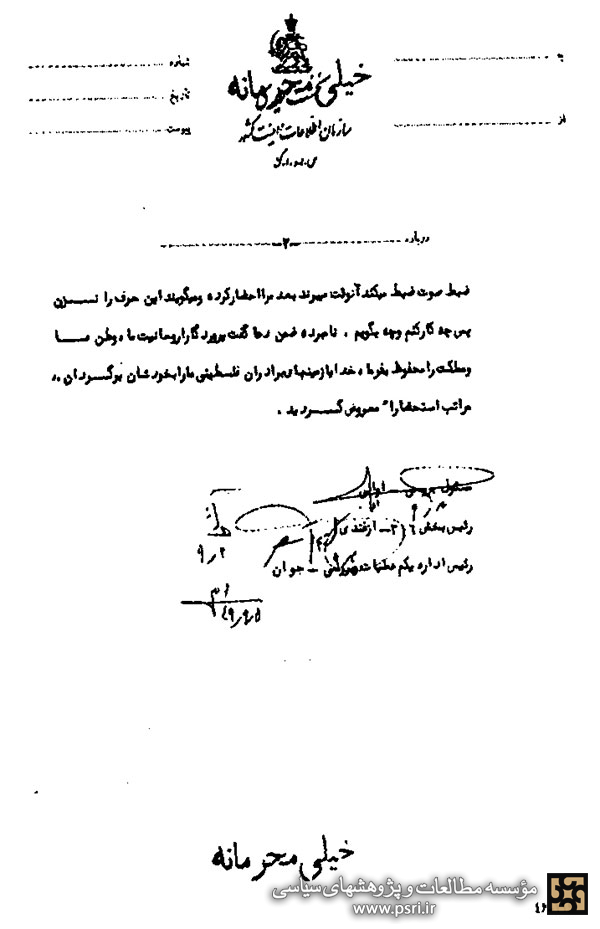 خیلی محرمانه
سازمان اطلاعات و امنیت کشور
س.ا.و.ا.ک
به
از
شماره
تاریخ
پیوست
درباره ـ۲ـ
ضبط صوت ضبط میکند آنوقت میبرند بعد مرا احضار کرده و میگویند این حرف را نـــزن
پس چه کار کنم و چه بگویم . نامبرده ضمن دعا گفت پروردگارا روحانیت ما ، وطن مــا
و مملکت را محفوظ بفرما ، خدایا زمینهای برادران فلسطینی ما را بخودشان برگـــردان ..
مراتب استحضارا" معروض گـــردید .
رئیس بخش ۳ـ ازغندی
رئیس اداره یکم عملیات ـ جوان
خیلی محرمانه
مؤسسه مطالعات و پژوهشهای سیاسی
www.psri.ir
۴۶